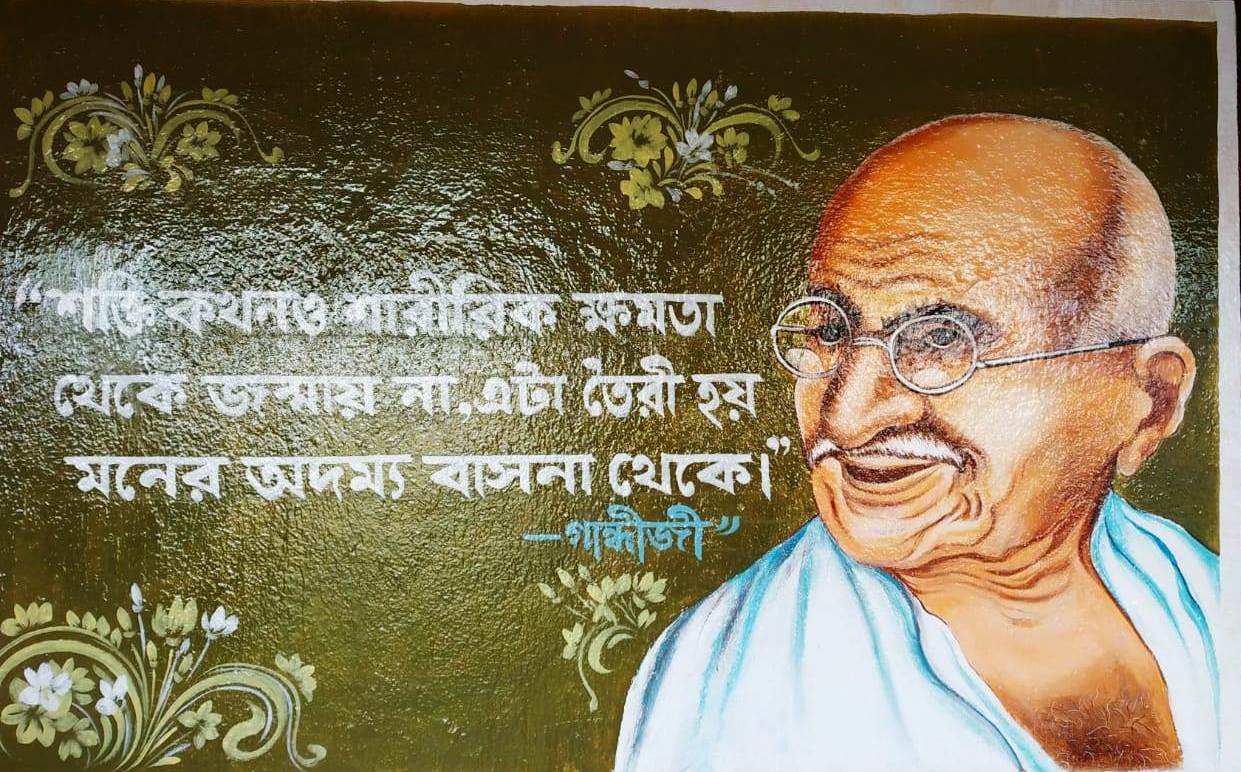 “শক্তি কখনও শারীরিক ক্ষমতা
থেকে জন্মায় না,এটা তৈরী হয়
মনের অদম্য বাসনা থেকে।”
—গান্ধীজী”